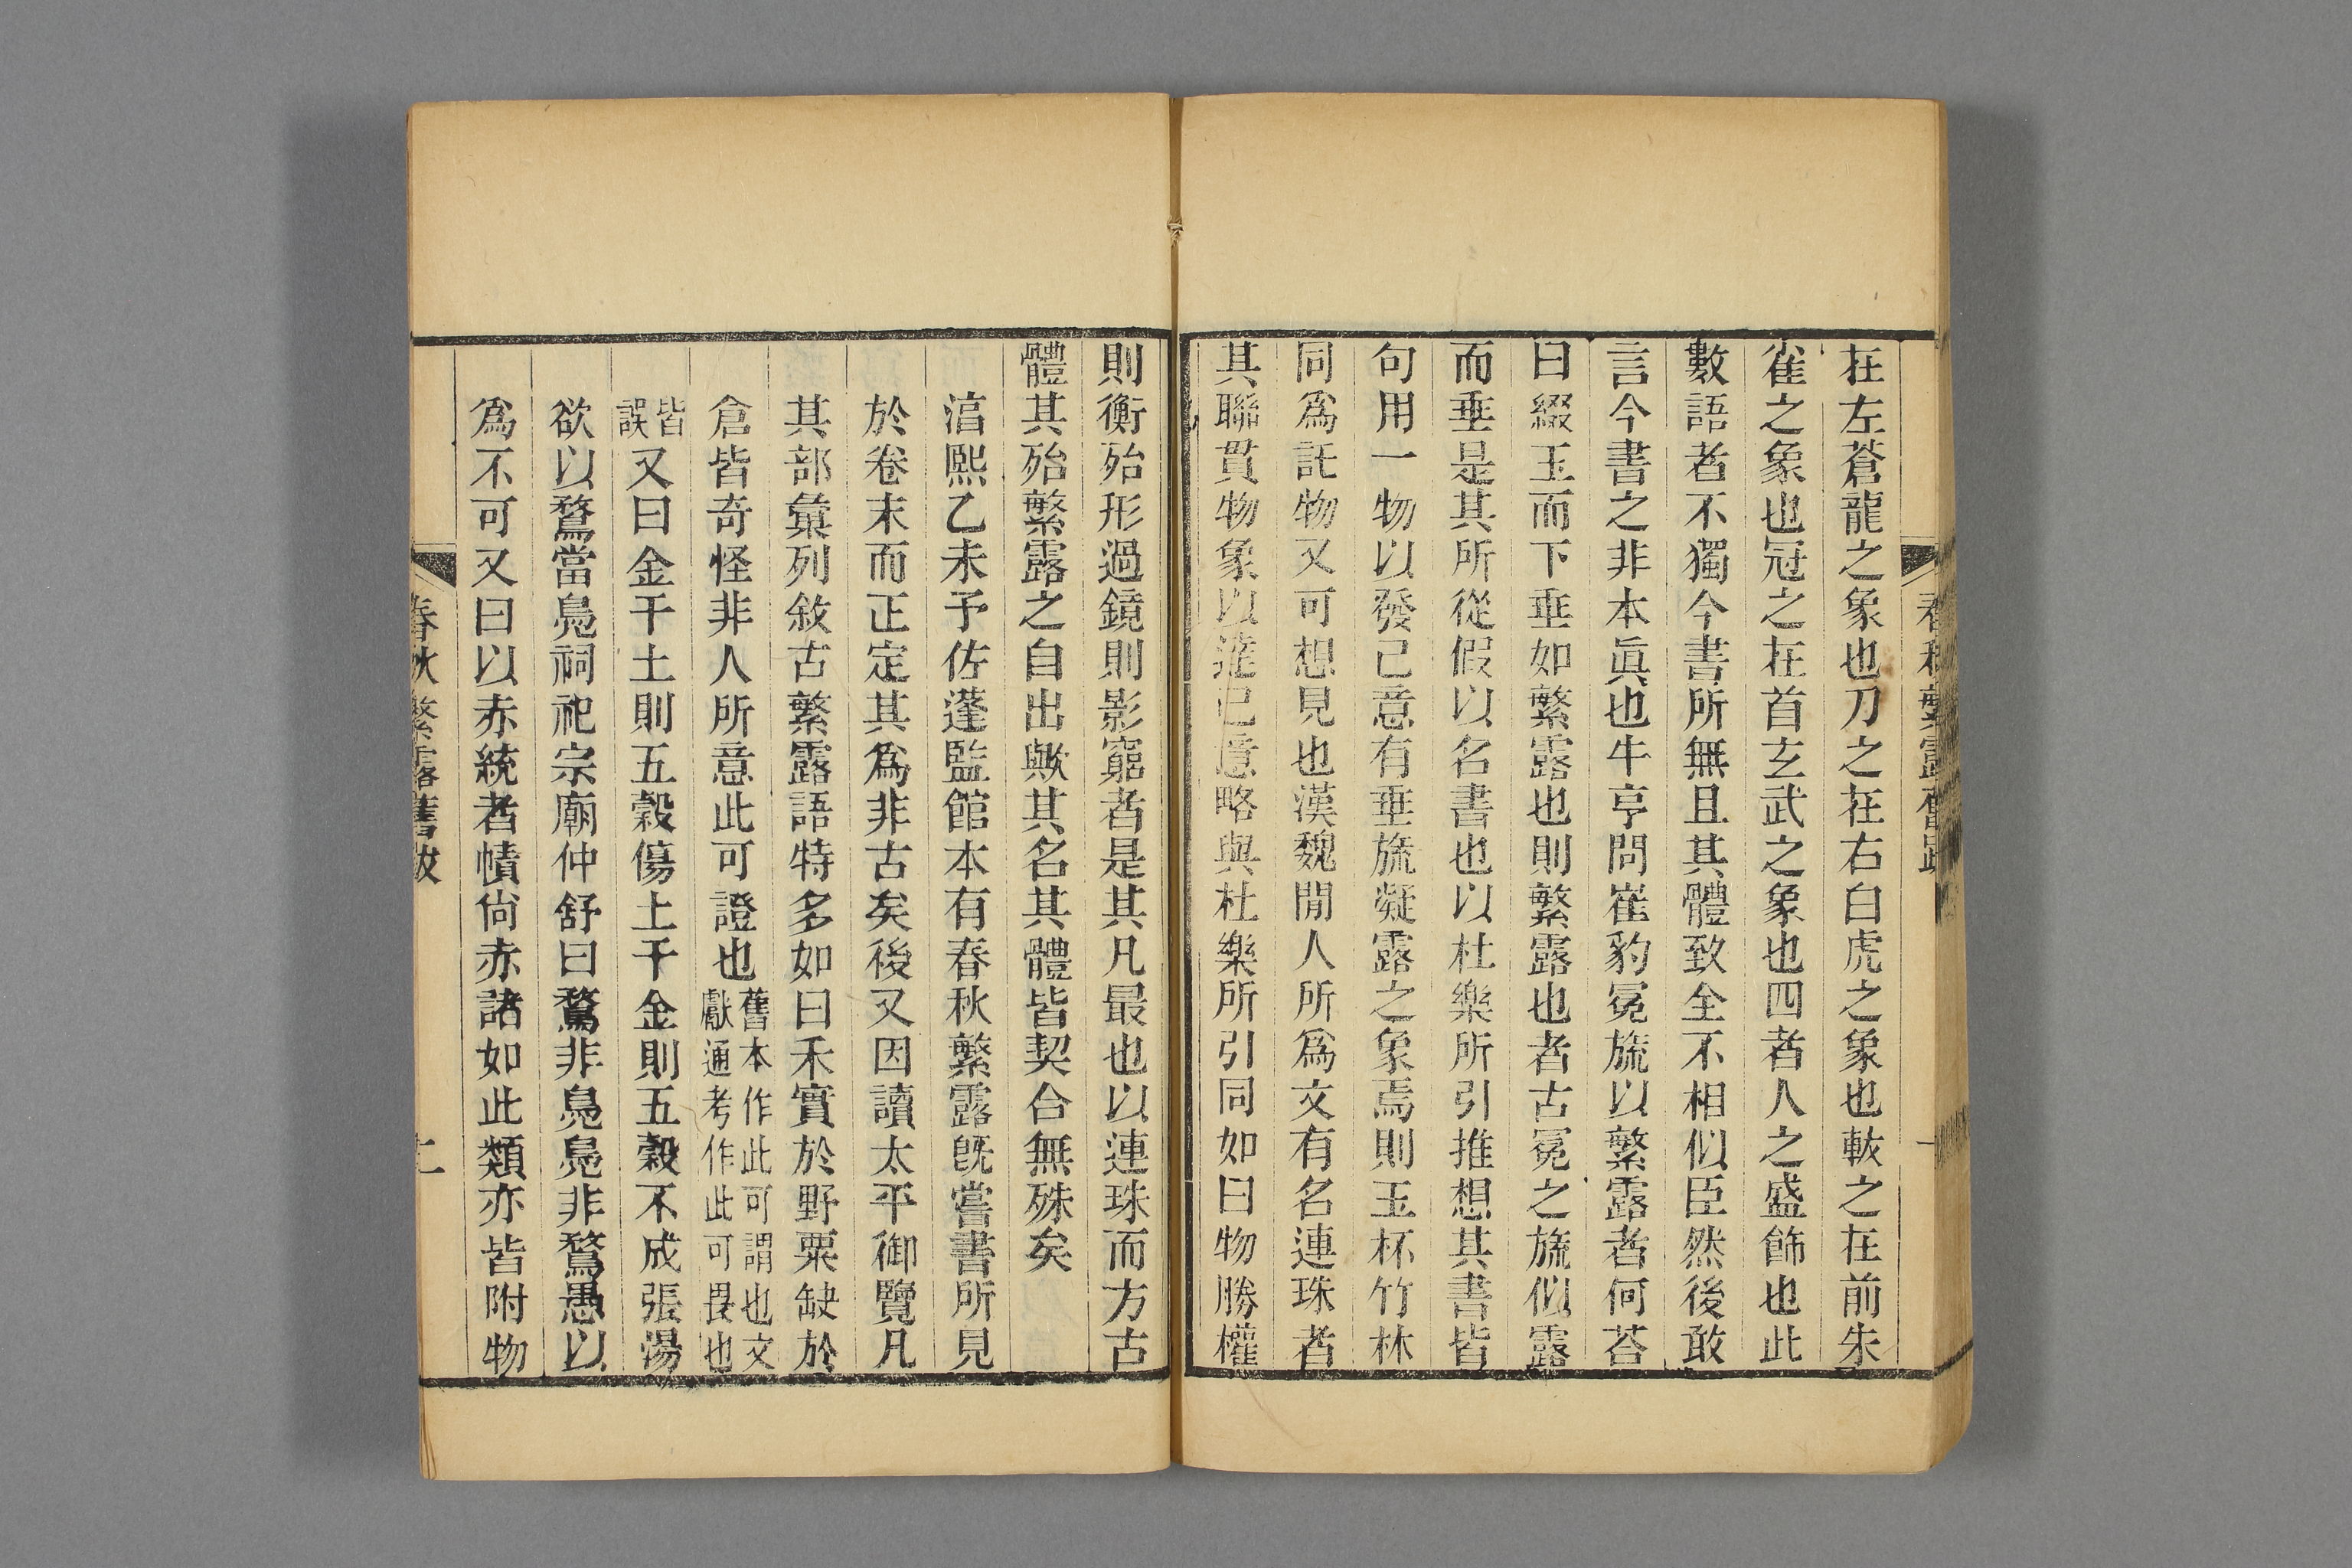 春秋繁露舊跋
在左蒼龍之象也刀之在右白虎之象也韍之在前朱
雀之象也冠之在首玄武之象也四者人之盛飾也此
數語者不獨今書所無且其體致全不相似臣然後敢
言今書之非本眞也牛亨問崔豹冕旒以繁露者何荅
曰綴玉而下垂如繁露也則繁露也者古冕之旒似露
而垂是其所從假以名書也以杜樂所引推想其書皆
句用一物以發己意有垂旒凝露之象焉則玉杯竹林
同爲託物又可想見也漢魏閒人所爲文有名連珠者
其聯貫物象以達己意略與杜樂所引同如曰物勝權
則衡殆形過鏡則影窮者是其凡最也以連珠而方古
體其殆繁露之自出歟其名其體皆契合無殊矣
淳熙乙未予佐蓬監館本有春秋繁露旣嘗書所見
於卷末而正定其爲非古矣後又因讀太平御覽凡
其部彙列敘古繁露語特多如曰禾實於野粟缺於
倉皆奇怪非人所意此可證也舊本作此可謂也文獻通考作此可畏也
皆誤又曰金干土則五穀傷土干金則五穀不成張湯
欲以鶩當鳧祠祀宗廟仲舒曰鶩非鳧鳧非鶩愚以
爲不可又曰以赤統者幘尚赤諸如此類亦皆附物
春秋繁露舊跋